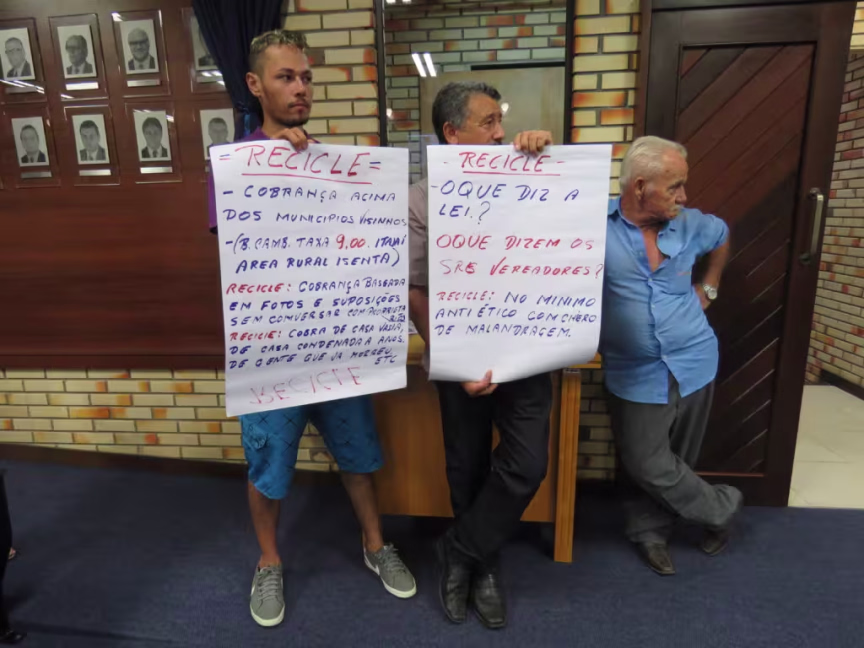 = RECICLE =
- COBRANÇA ACIMA
DOS MUNICIPIOS VISINHOS
- (B. CAMB. TAXA 9,00. ITAJAÍ
AREA RURAL ISENTA)
RECICLE: COBRANÇA BASEADA
EM FOTOS E SUPOSIÇÕES
SEM CONVERSAR COM
RECICLE: COBRA DE CASA VASIA,
DE CASA CONDENADA A ANOS.
DE GENTE QUE JA MORREU,
ETC
RECICLE
- RECICLE -
- OQUE DIZ A
LEI.?
OQUE DIZEM OS
SRE VEREADORES?
RECICLE: NO MINIMO
ANTI ÉTICO COM CHERO
DE MALANDRAGEM.